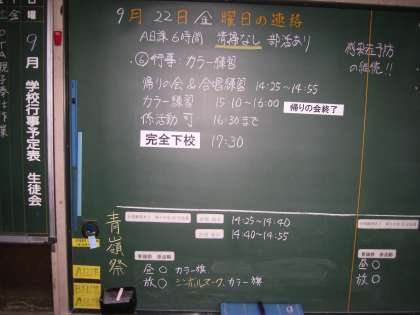 9月22日金曜日の連絡
A日課 6時間 清掃なし 部活あり
⑥行事:カラー練習
帰りの会&合唱練習 14:25~14:55
カラー練習 15:10~16:00 帰りの会終了
係活動 可 16:30まで
完全下校 17:30
感染症予防
の継続!!
9月 学校行事予定表 生徒会
土 金
日 曜
14:25~14:40
14:40~14:55
青嶺祭
昼○ カラー旗
放○ シンボルマーク、カラー旗
昼○
放○